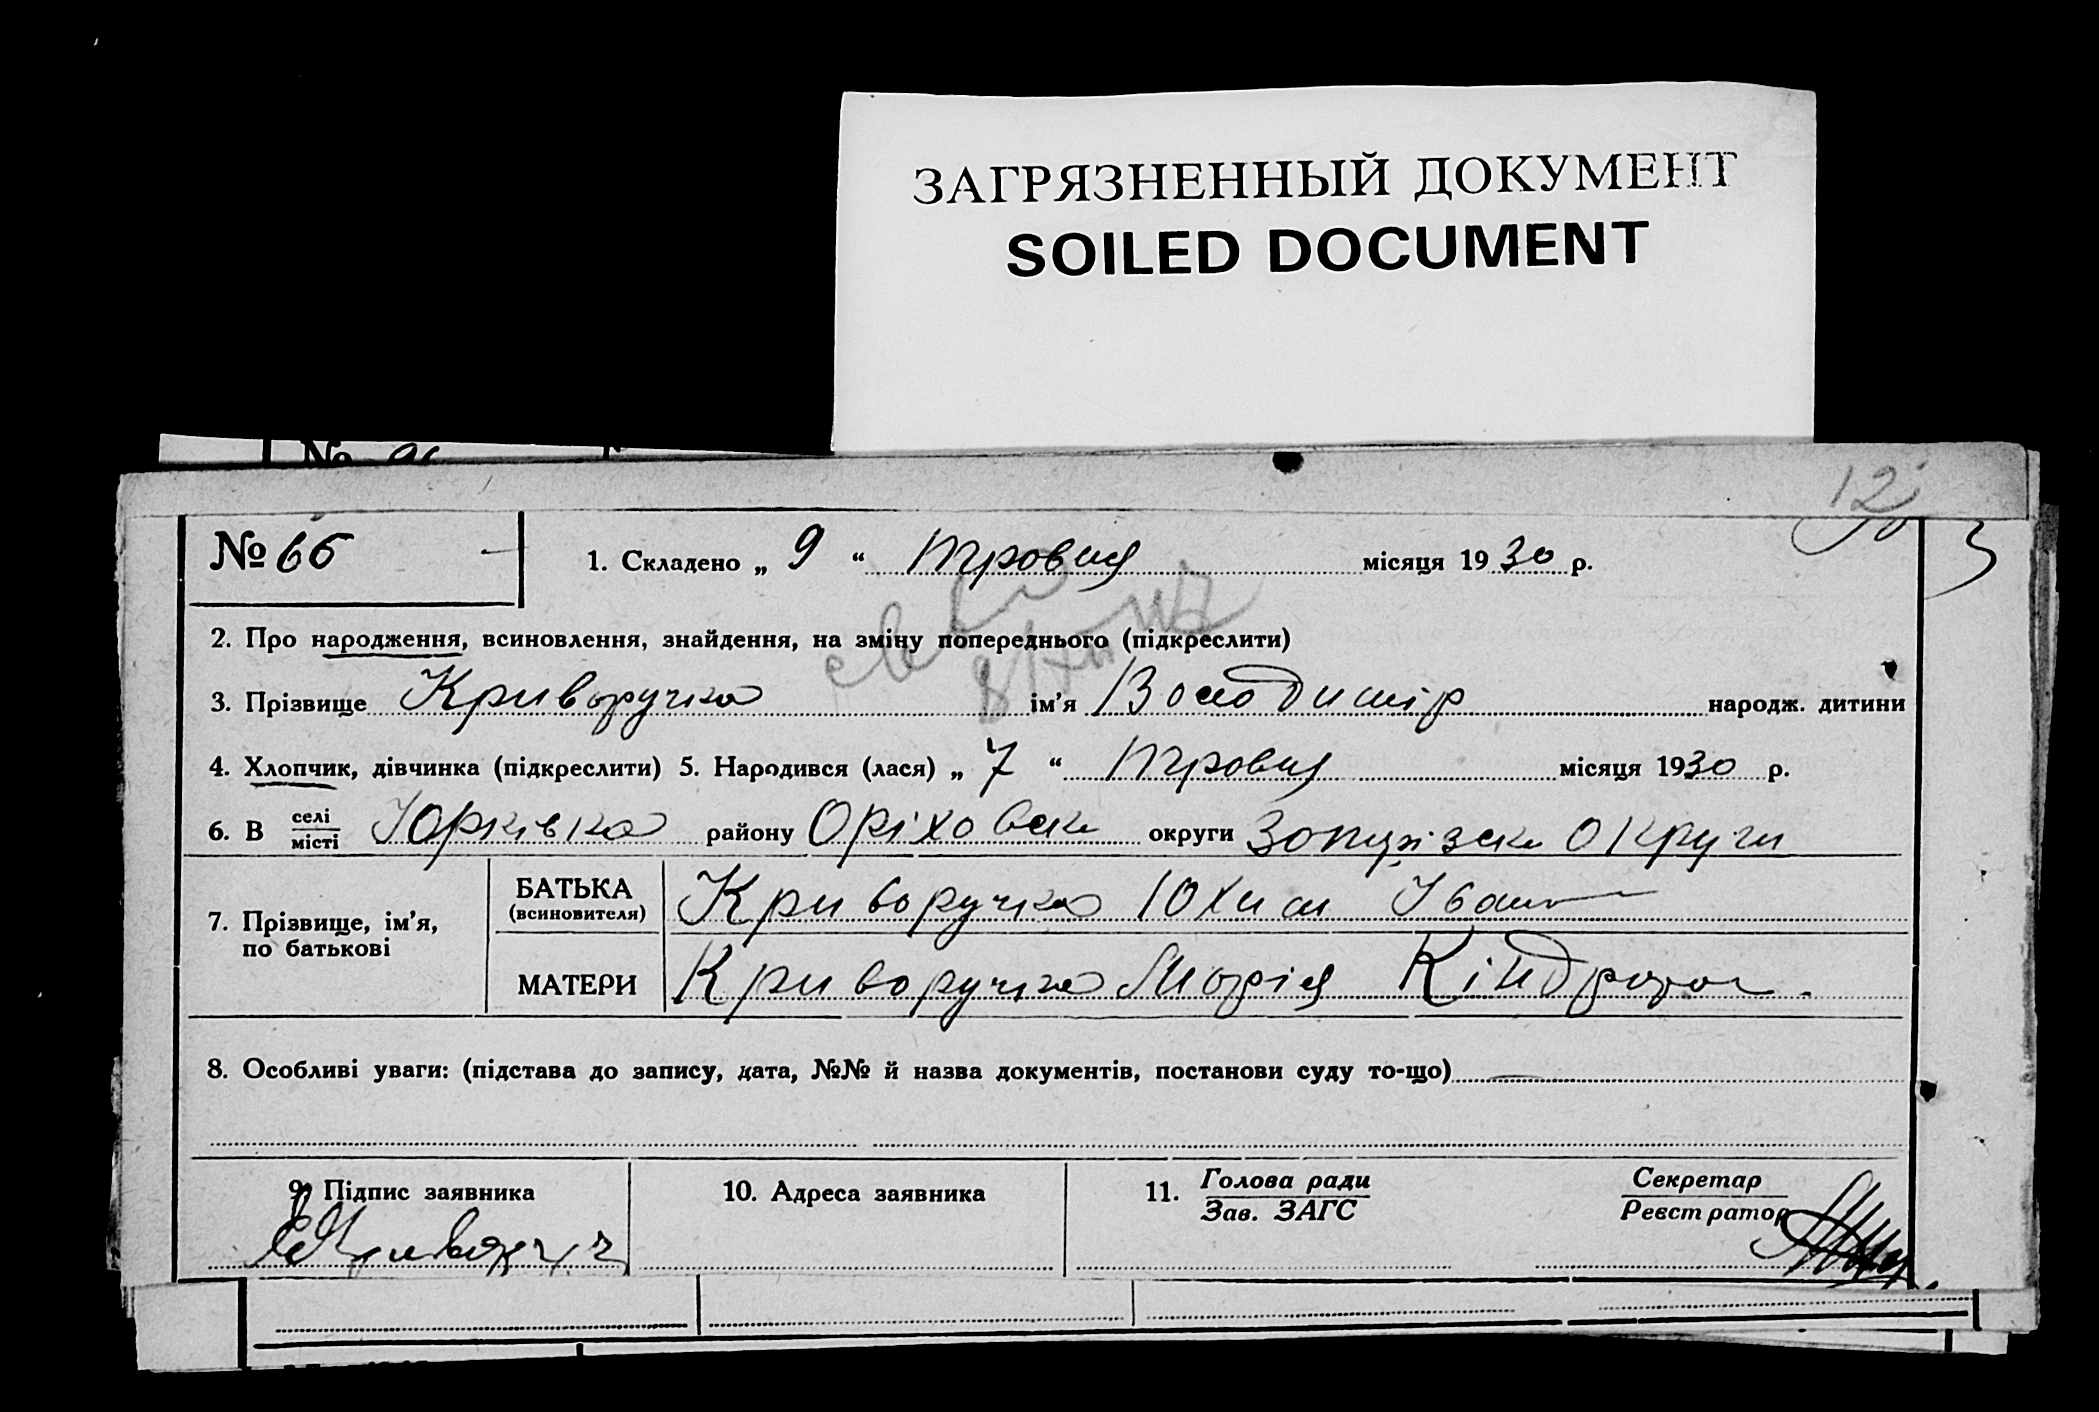 ЗАГРЯЗНЕННЫЙ ДОКУМЕНТ
SOILED DOCUMENT
№
12
№ 66
1. Складено „ 9 “ травня місяця 1930 р.
2. Про народження, всиновлення, знайдення, на зміну попереднього (підкреслити)
3. Прізвище Криворучко ім'я Володимір народж. дитини
4. Хлопчик, дівчинка (підкреслити) 5. Народився (лася) „ 7 “ травня місяця 1930 р.
6. В селі / місті Юрківка району Оріховськ округи Запорізськ округи
7. Прізвище, ім'я, по батькові
БАТЬКА (всиновителя) Криворучко Юхим Іван
МАТЕРИ Криворучко Марія Кіндрат
8. Особливі уваги: (підстава до запису, дата, №№ й назва документів, постанови суду то-що)
9. Підпис заявника 10. Адреса заявника 11. Голова ради / Зав. ЗАГС Секретар / Реєстратор